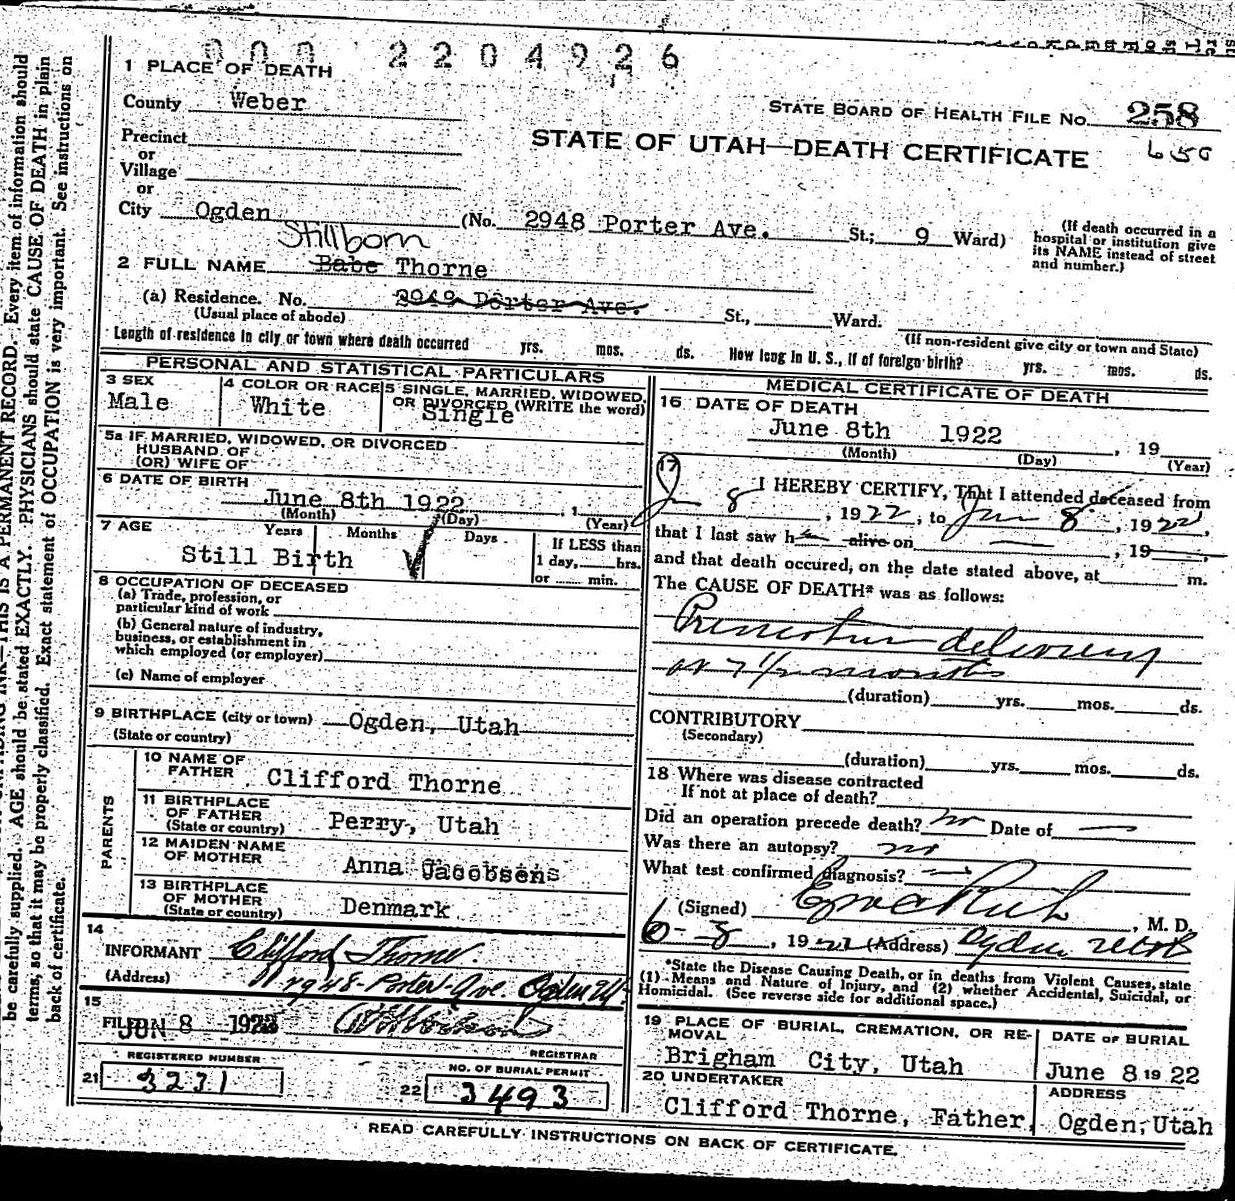 000 2204926
1 PLACE OF DEATH
County Weber
STATE BOARD OF HEALTH FILE No. 258
650
Precinct
STATE OF UTAH—DEATH CERTIFICATE
or
Village
or
City Ogden (No. 2948 Porter Ave. St.; 9 Ward)
(If death occurred in a hospital or institution give its NAME instead of street and number.)
Stillborn
2 FULL NAME Babe Thorne
(a) Residence. No. 2949 Porter Ave. St., Ward.
(Usual place of abode)
(If non-resident give city or town and State)
Length of residence in city or town where death occurred yrs. mos. ds. How long in U. S., if of foreign birth? yrs. mos. ds.
PERSONAL AND STATISTICAL PARTICULARS
3 SEX
Male
4 COLOR OR RACE
White
5 SINGLE, MARRIED, WIDOWED, OR DIVORCED (WRITE the word)
Single
5a IF MARRIED, WIDOWED, OR DIVORCED
HUSBAND OF
(OR) WIFE OF
6 DATE OF BIRTH
June 8th 1922, 1
(Month) (Day) (Year)
7 AGE Years Months Days
Still Birth
If LESS than
1 day, hrs.
or min.
8 OCCUPATION OF DECEASED
(a) Trade, profession, or
particular kind of work
(b) General nature of industry,
business, or establishment in
which employed (or employer)
(c) Name of employer
9 BIRTHPLACE (city or town) Ogden, Utah
(State or country)
PARENTS
10 NAME OF FATHER Clifford Thorne
11 BIRTHPLACE OF FATHER Perry, Utah
(State or country)
12 MAIDEN NAME OF MOTHER Anna Jacobsens
13 BIRTHPLACE OF MOTHER Denmark
(State or country)
14
INFORMANT Clifford Thorne.
(Address) 2948 Porter Ave. Ogden Ut.
15
FILED JUN 8 1922
REGISTRAR
REGISTERED NUMBER
21 3231
NO. OF BURIAL PERMIT
22 3493
MEDICAL CERTIFICATE OF DEATH
16 DATE OF DEATH
June 8th 1922, 19
(Month) (Day) (Year)
17
I HEREBY CERTIFY, That I attended deceased from
Jun 8, 1922, to Jun 8, 1922,
that I last saw h alive on —, 19
and that death occured, on the date stated above, at m.
The CAUSE OF DEATH* was as follows:
Premature delivery
at 7 1/2 months
(duration) yrs. mos. ds.
CONTRIBUTORY
(Secondary)
(duration) yrs. mos. ds.
18 Where was disease contracted
If not at place of death?
Did an operation precede death? no Date of —
Was there an autopsy? no
What test confirmed diagnosis? —
(Signed) Rich, M. D.
6-8, 1922 (Address) Ogden Utah
*State the Disease Causing Death, or in deaths from Violent Causes, state
(1) Means and Nature of Injury, and (2) whether Accidental, Suicidal, or
Homicidal. (See reverse side for additional space.)
19 PLACE OF BURIAL, CREMATION, OR REMOVAL
Brigham City, Utah
DATE OF BURIAL
June 8 1922
20 UNDERTAKER
Clifford Thorne, Father
ADDRESS
Ogden, Utah
READ CAREFULLY INSTRUCTIONS ON BACK OF CERTIFICATE.
THIS IS A PERMANENT RECORD. Every item of information should
be carefully supplied. AGE should be stated EXACTLY. PHYSICIANS should state CAUSE OF DEATH in plain
terms, so that it may be properly classified. Exact statement of OCCUPATION is very important. See instructions on
back of certificate.